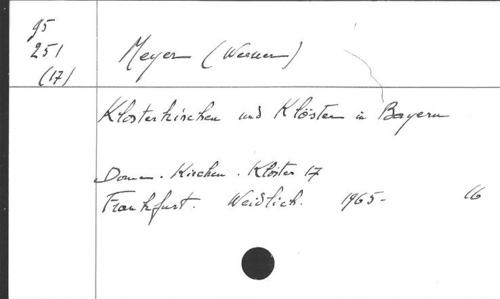 95
251
(17)
Meyer (Werner)
Klosterkirchen und Klöster in Bayern
Domen. Kirchen. Klöster 17
Frankfurt. Weidlich. 1965-